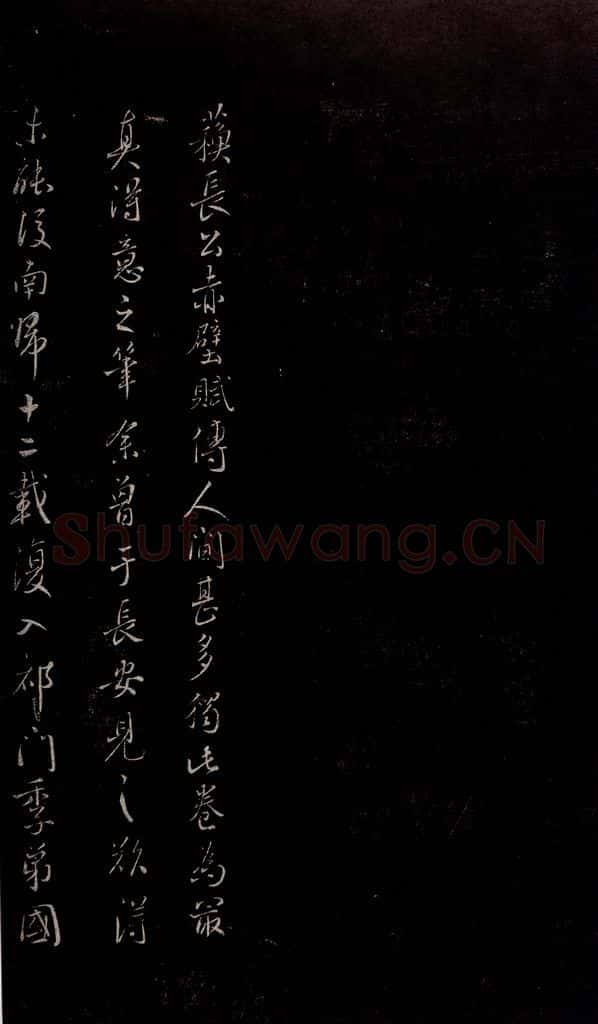 蘇長公赤壁賦傳人間甚多獨此卷為最
真得意之筆余曾于長安見之欲得
未能後南歸十二載復入祁門季弟國
Shufawang.CN